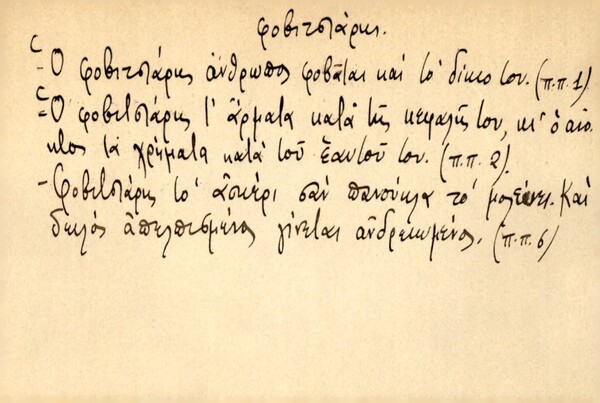 φοβιτσιάρης.
- Ὁ φοβιτσιάρης ἄνθρωπος φοβᾶται καὶ τὸ δίκιο του. (π.π. 1)
- Ὁ φοβετσιάρης τ' ἄρματα κατὰ τῆς κεφαλῆς του, κι' ὁ
τὰ χρήματα κατὰ τοῦ ἑαυτοῦ του. (π.π. 2).
- Φοβετσιάρης τὸ ἀσκέρι σὰν πανούκλα τὸ μολεύει. Καὶ
δειλὸς ἀπελπισμένος γίνεται ἀνδρειωμένος. (π.π. 6)